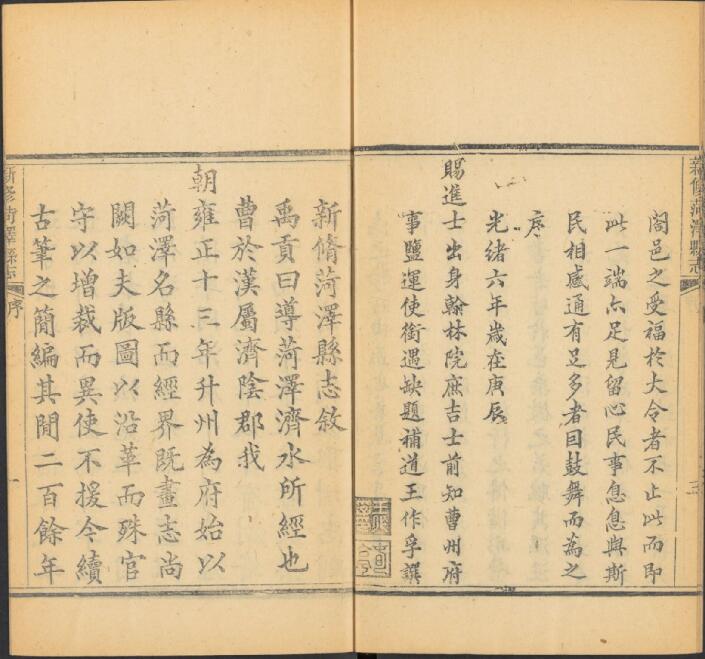 新修菏澤縣志
三
閤邑之受福於大令者不止此而即
此一端亦足見留心民事息息與斯
民相感通有足多者因鼓舞而為之
序
光緒六年歲在庚辰
賜進士出身翰林院庶吉士前知曹州府
事鹽運使銜遇缺題補道王作孚譔
新脩菏澤縣志敘
禹貢曰導菏澤濟水所經也
曹於漢屬濟陰郡我
朝雍正十三年升州為府始以
菏澤名縣而經界既畫志尚
闕如夫版圖以沿革而殊官
守以增裁而異使不援今續
古筆之簡編其閒二百餘年
新修菏澤縣志
序
一